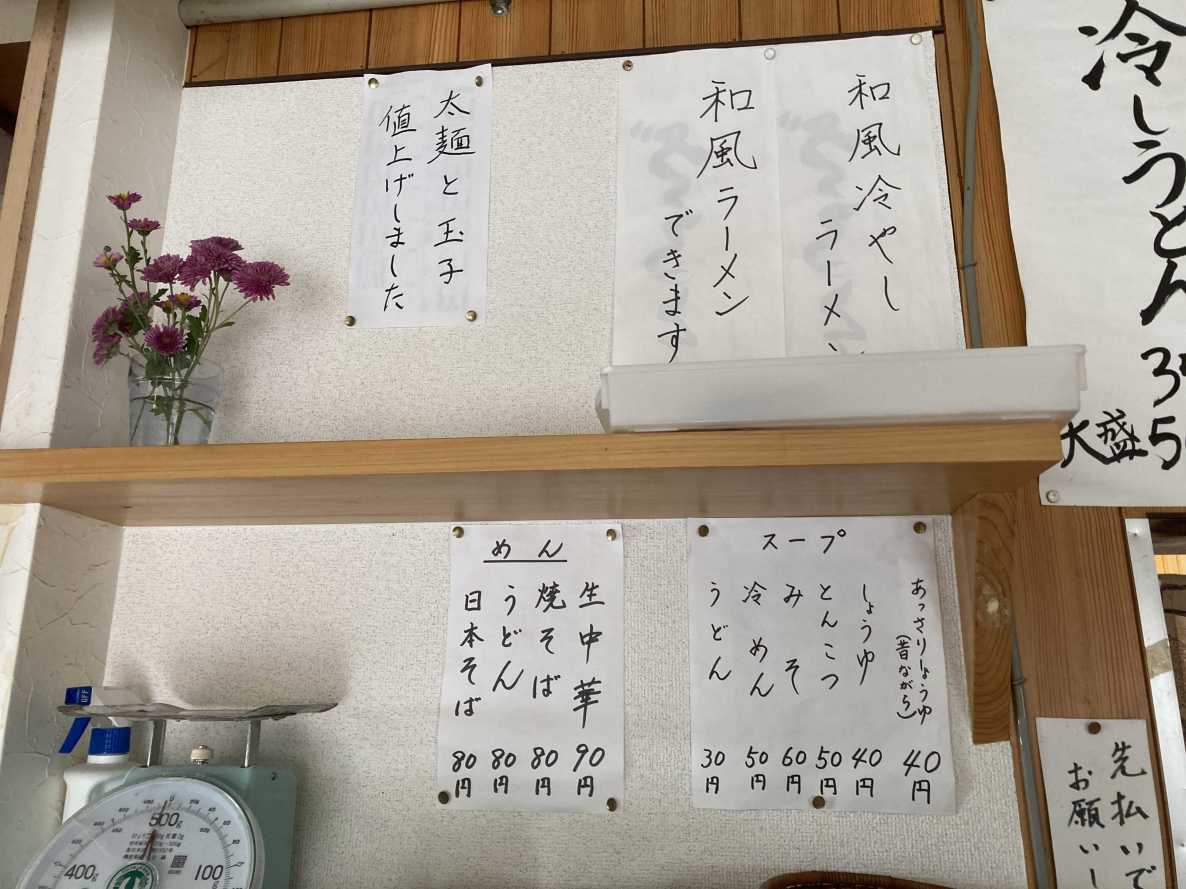 冷しうどん
大盛
和風冷やし
ラーメン
和風ラーメン
できます
太麺と玉子
値上げしました
スープ
あっさりしょうゆ
(昔ながら)
40円
しょうゆ 40円
とんこつ 50円
みそ 60円
冷めん 50円
うどん 30円
めん
生中華 90円
焼そば 80円
うどん 80円
日本そば 80円
先払いで
お願いし
OFF
500g
400g
100